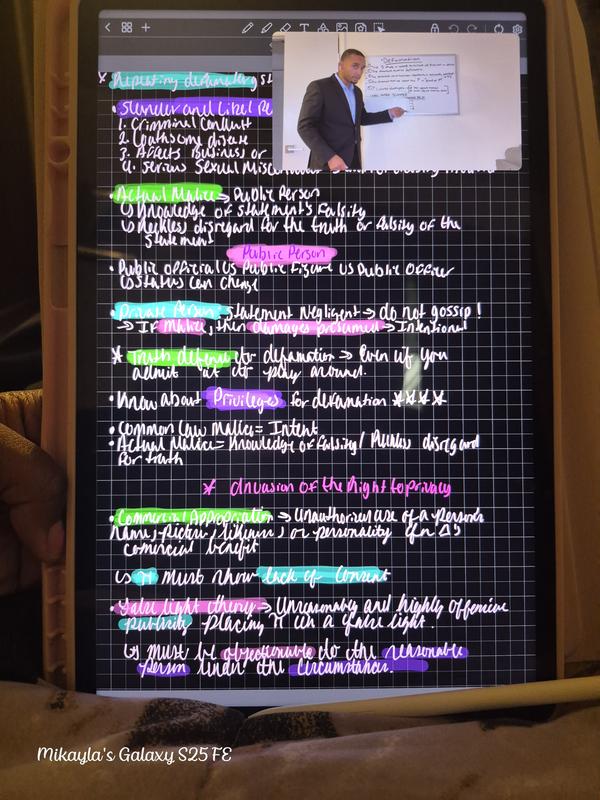 * Repeating defamatory st
• Slander and Libel Pe
1. Criminal Conduct
2. Loathsome disease
3. Affects Business or
4. Serious Sexual Misconduct
Defamation
• Actual Malice → Public Person
↳ Knowledge of statement's falsity
↳ Reckless disregard for the truth or falsity of the
statement
Public Person
• Public official vs Public Figure vs Public Officer
↳ Status can change
• Private Person statement Negligent → do not gossip!
→ If Malice, then damages presumed → Intentional
* Truth defense for defamation → Even if you
admit it or play around.
• Know about Privileges for defamation ****
• Common law Malice = Intent
• Actual Malice = Knowledge of falsity / Reckless disregard
for truth
* Invasion of the Right to privacy
• Commercial Appropriation → Unauthorized use of a person's
name, picture, likeness, or personality for Δ's
comercial benefit
↳ π must show lack of Consent
• False light theory → Unreasonably and highly offensive
publicity placing π in a false light.
↳ must be objectionable to the reasonable
person under the circumstances.
Mikayla's Galaxy S25 FE